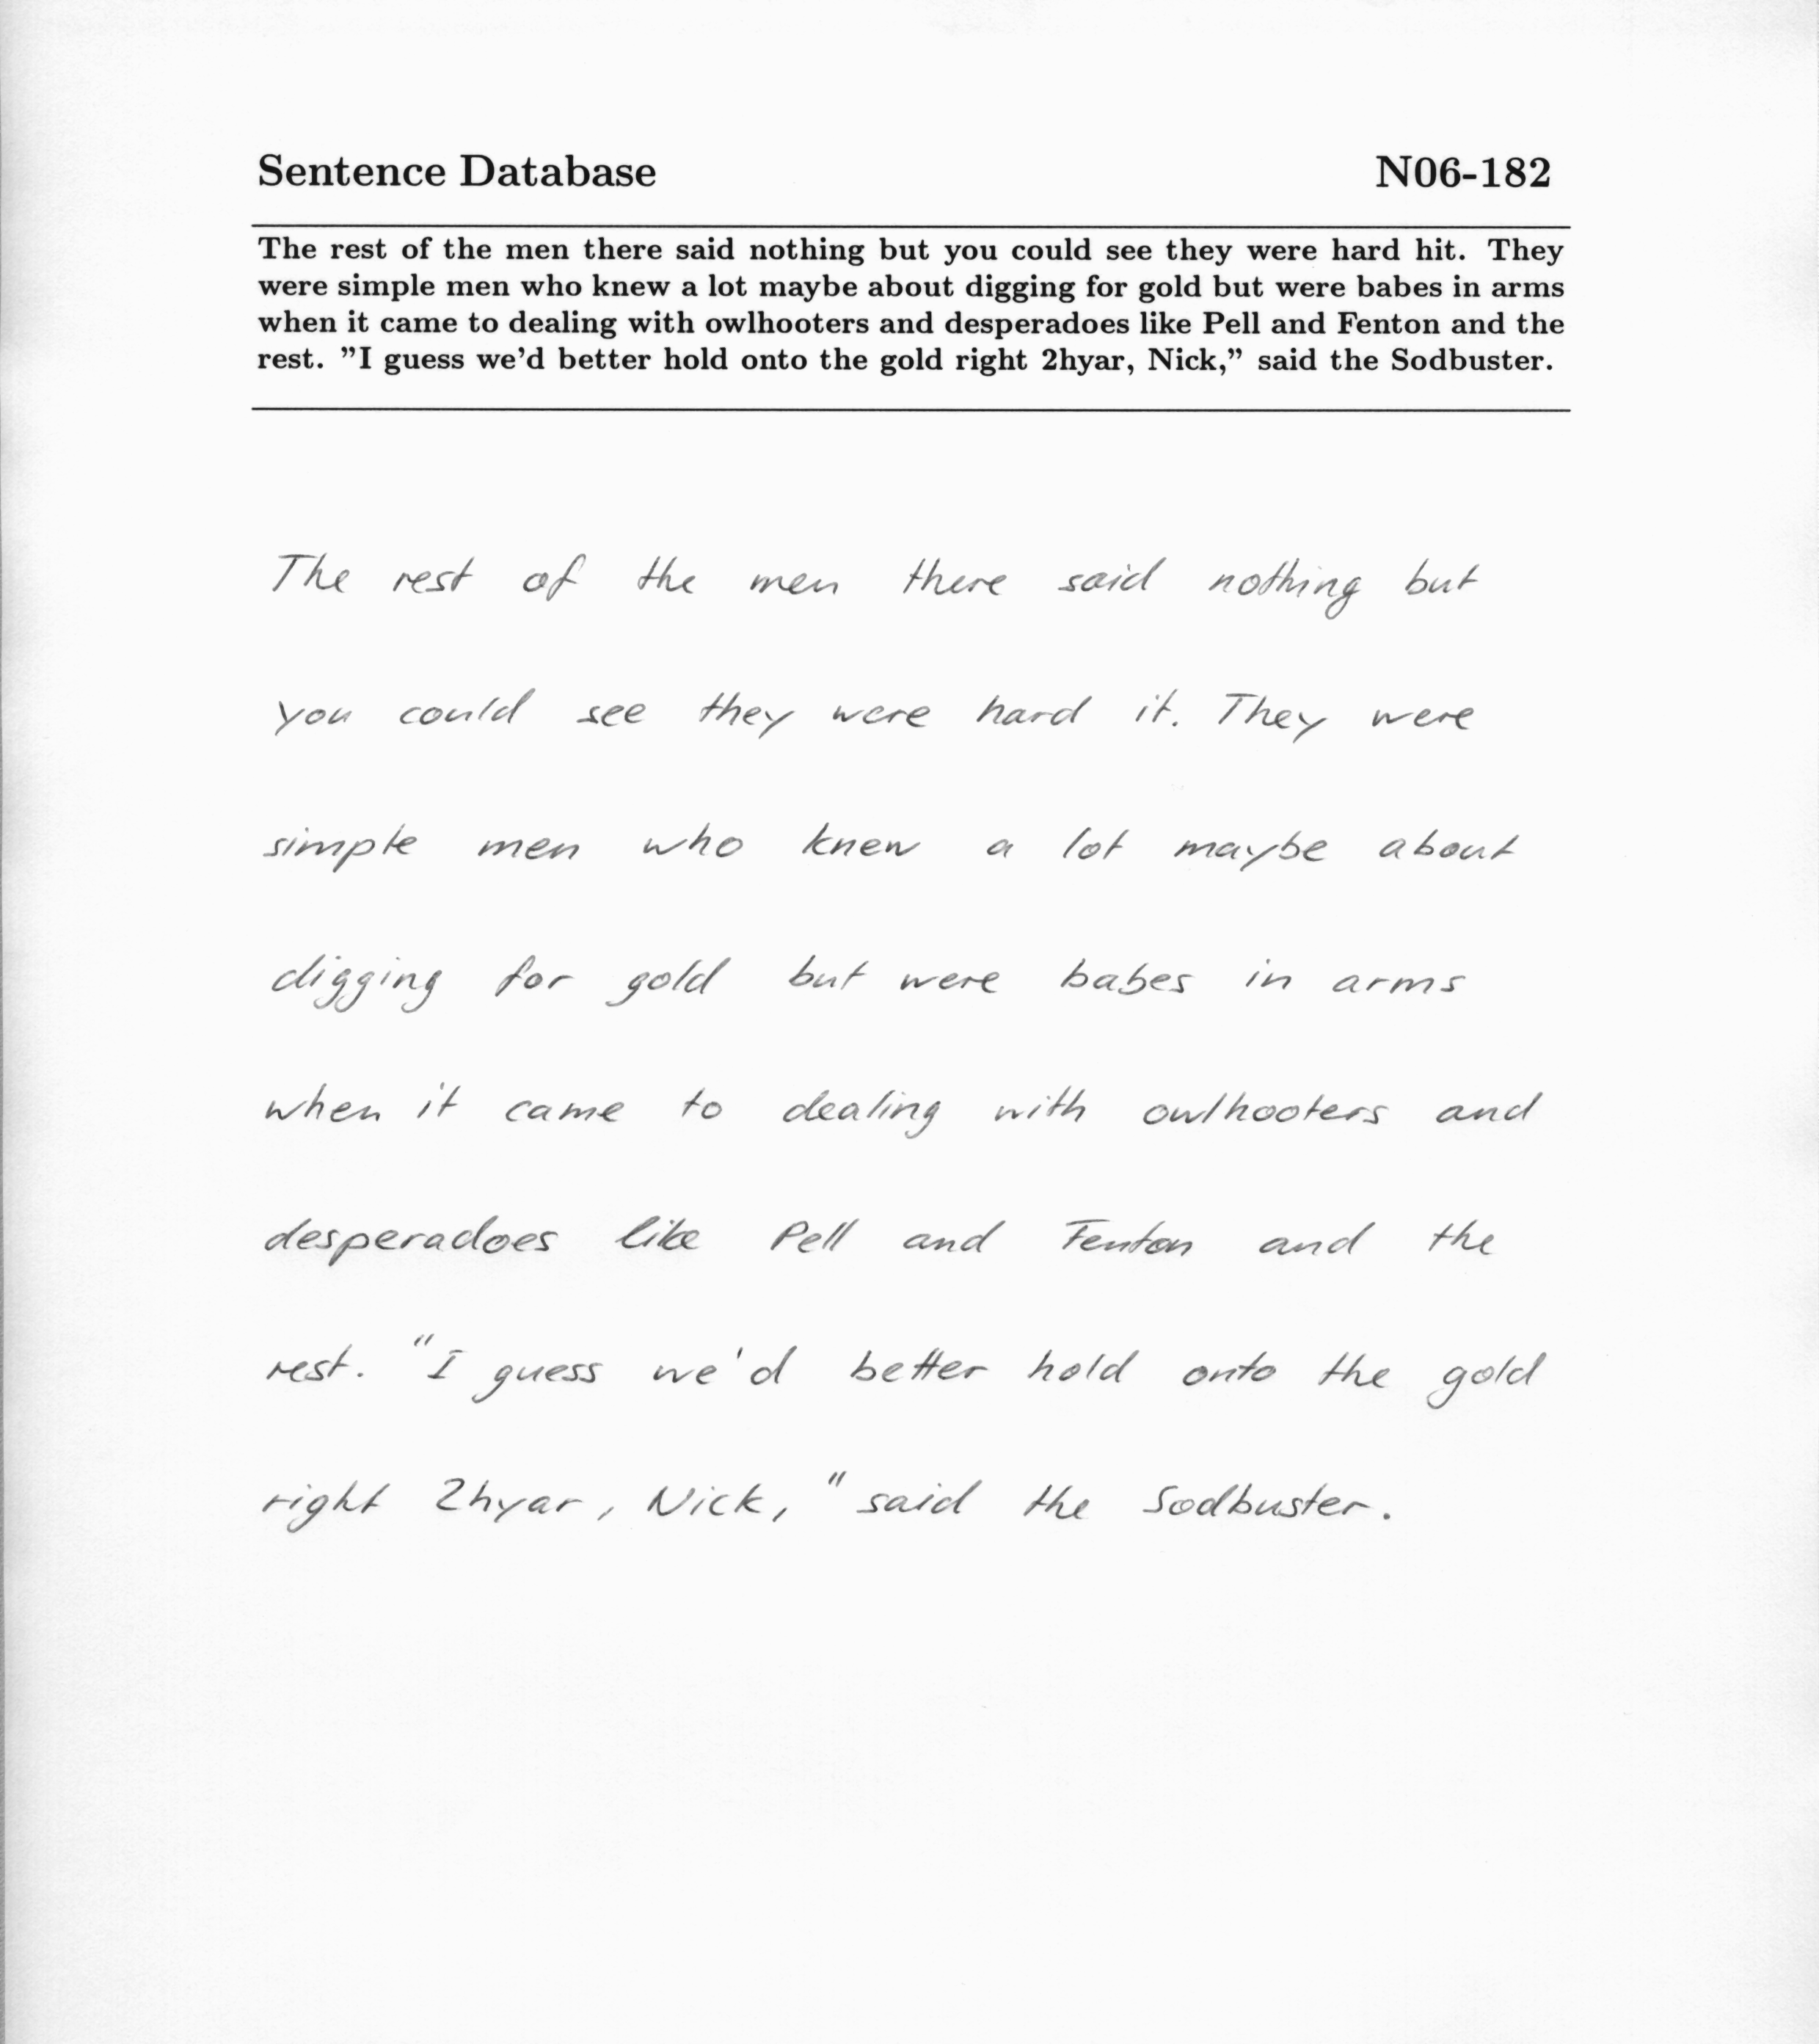 Sentence Database N06-182
The rest of the men there said nothing but you could see they were hard hit. They
were simple men who knew a lot maybe about digging for gold but were babes in arms
when it came to dealing with owlhooters and desperadoes like Pell and Fenton and the
rest. ”I guess we’d better hold onto the gold right 2hyar, Nick,” said the Sodbuster.
The rest of the men there said nothing but
you could see they were hard it. They were
simple men who knew a lot maybe about
digging for gold but were babes in arms
when it came to dealing with owlhooters and
desperadoes like Pell and Fenton and the
rest. "I guess we'd better hold onto the gold
right 2hyar, Nick," said the Sodbuster.